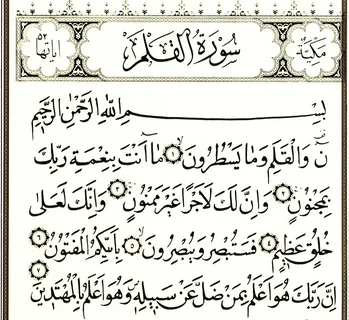 مكية
سورة القلم
اياتها ٥٢
بسم الله الرحمن الرحيم
نٓ وَالْقَلَمِ وَمَا يَسْطُرُونَ ١ مَٓا اَنْتَ بِنِعْمَةِ رَبِّكَ
بِمَجْنُونٍ ٢ وَاِنَّ لَكَ لَاَجْرًا غَيْرَ مَمْنُونٍ ٣ وَاِنَّكَ لَعَلٰى
خُلُقٍ عَظِيمٍ ٤ فَسَتُبْصِرُ وَيُبْصِرُونَ ٥ بِاَيِّكُمُ الْمَفْتُونُ ٦
اِنَّ رَبَّكَ هُوَ اَعْلَمُ بِمَنْ ضَلَّ عَنْ سَبِيلِهِ وَهُوَ اَعْلَمُ بِالْمُهْتَدِينَ ٧